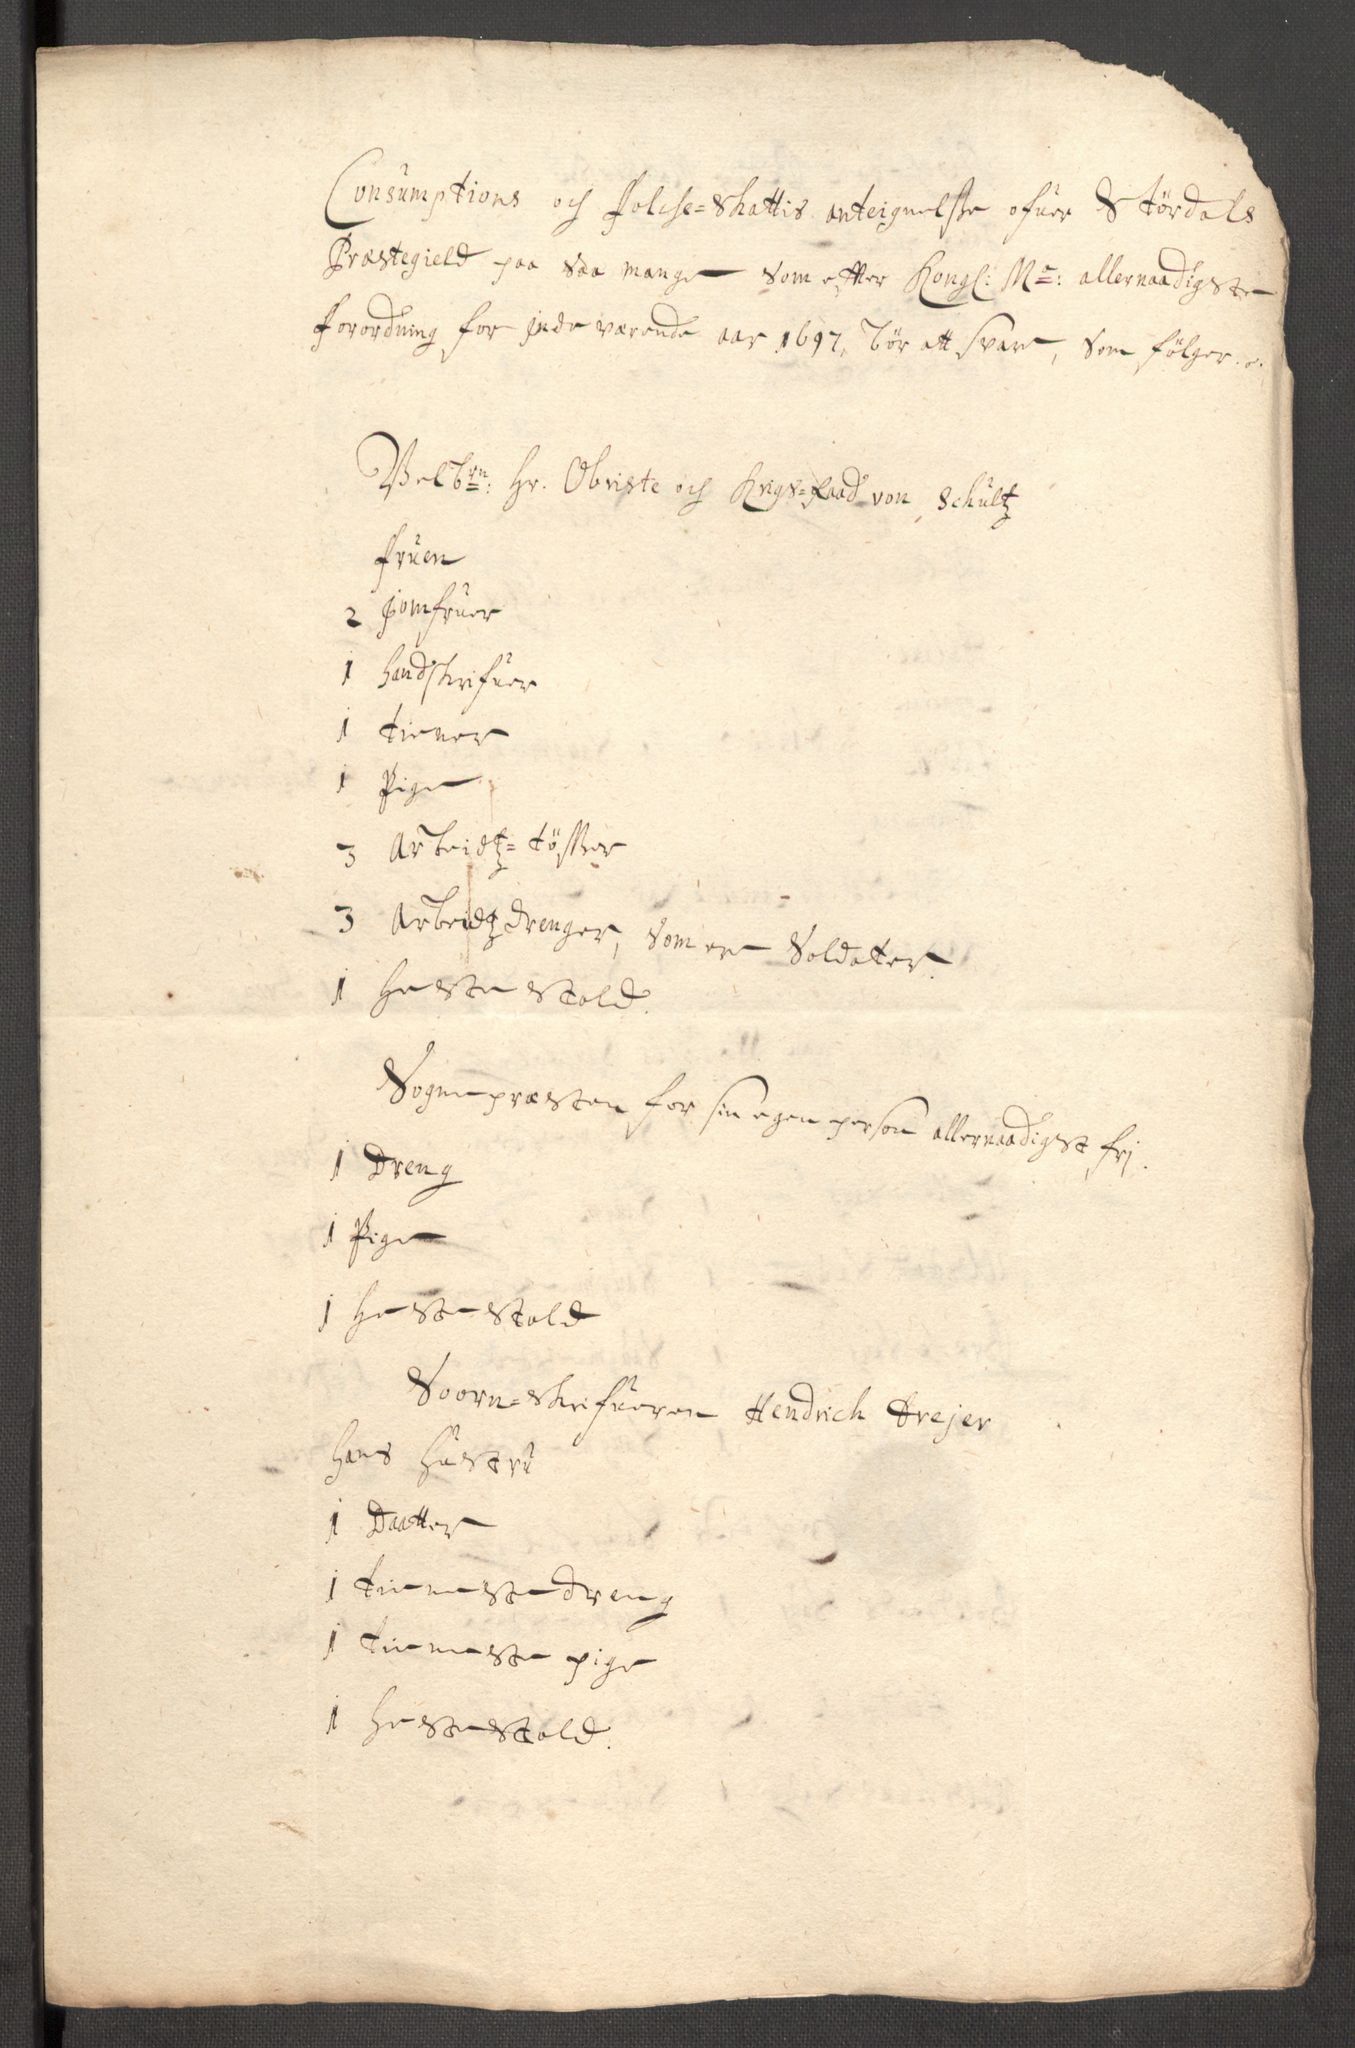 Consumptions och Folche=Skattis anteignelsse ofuer Størdals
Præstegield paa saa mange som effter Kongl: Ma: allernaadigste
forordning for inde værende aar 1697, bør att svare, som følger.
Velbrn: Hr. Obriste och Krigs=Raad von Schultz
Fruen
2 Jomfruer
1 handskrifuer
1 tiener
1 Pige
3 Arbeidtz=tösser
3 Arbeidtzdrenger, som er Soldater.
1 Heste stald.
Sognepræsten for sin egen person allernaadigst frj.
1 Dreng
1 Pige
1 Hestestald
Soorn=skrifueren Hendrich Drejer
hans hustrü
1 Daatter
1 tienestedreng
1 tieneste pige
1 Hestestald.